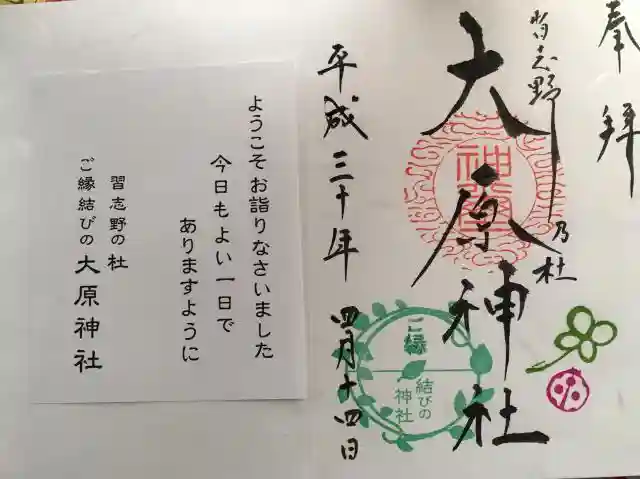 奉拝
習志野乃杜
大原神社
平成三十年 四月十四日
ご縁
結びの
神社
ようこそお詣りなさいました
今日もよい一日で
ありますように
習志野の杜
ご縁結びの 大原神社